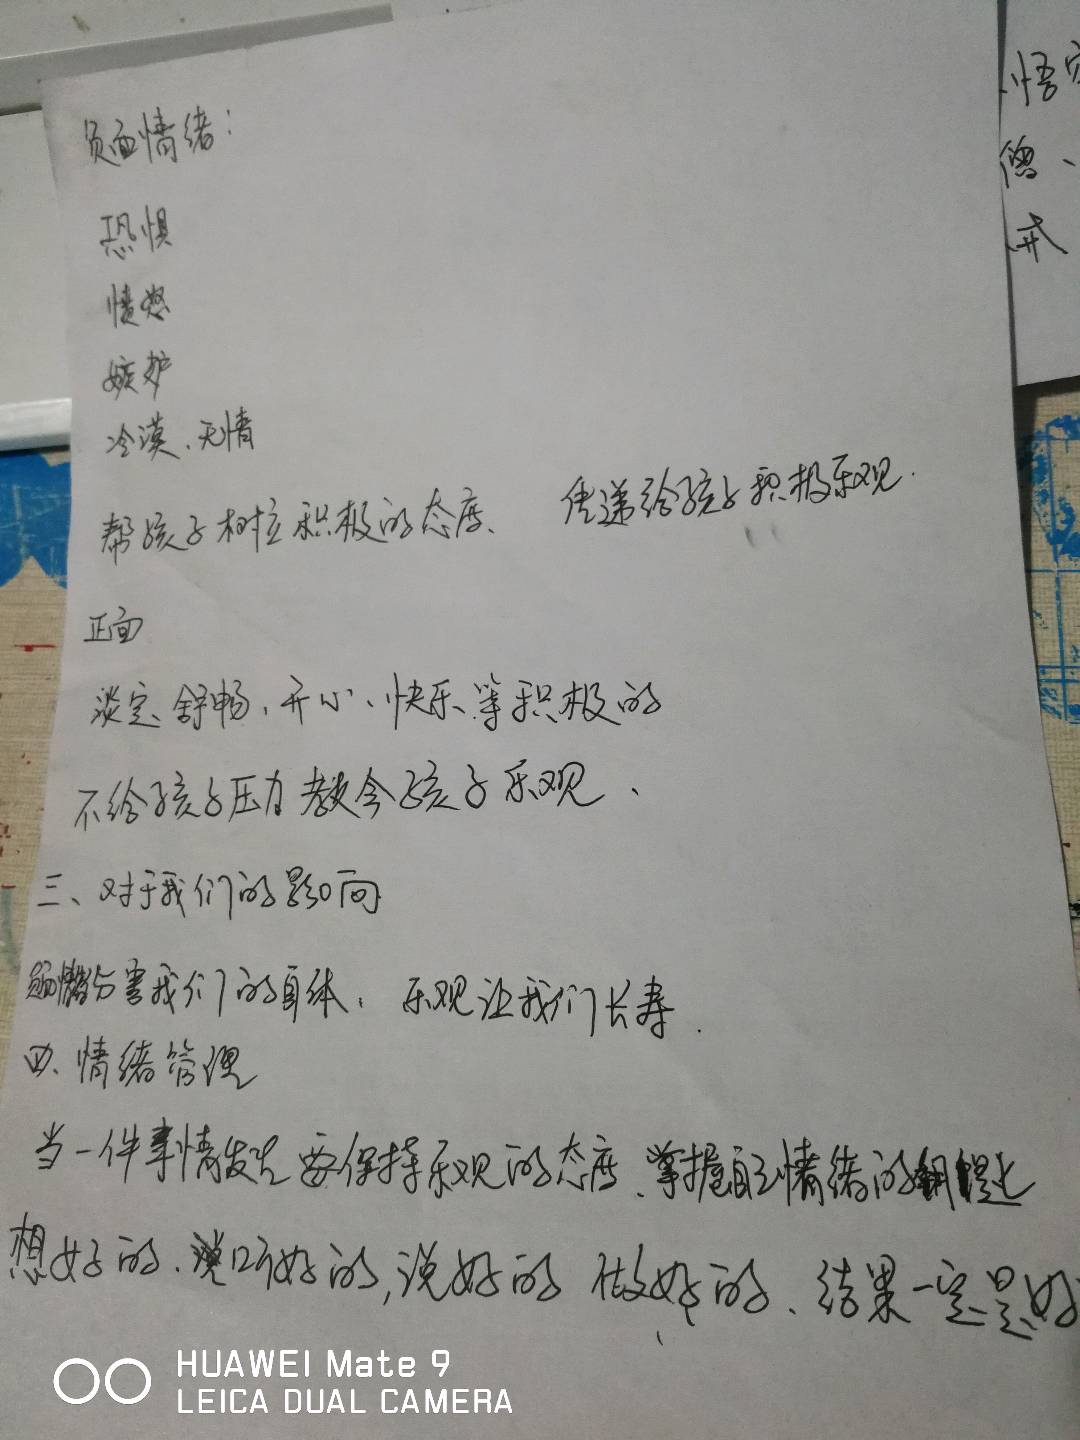 负面情绪：
恐惧
愤怒
嫉妒
冷漠、无情
帮孩子树立积极的态度、 传递给孩子积极乐观.
正面
淡定、舒畅、开心、快乐等积极的
不给孩子压力 教会孩子乐观、
三、对于我们的影响
负面情绪会害我们的身体、乐观让我们长寿.
四、情绪管理
当一件事情发生要保持乐观的态度、掌握自己情绪的钥匙
想好的、听好的,说好的 做好的、结果一定是好
悟空
僧、
戒
HUAWEI Mate 9
LEICA DUAL CAMERA